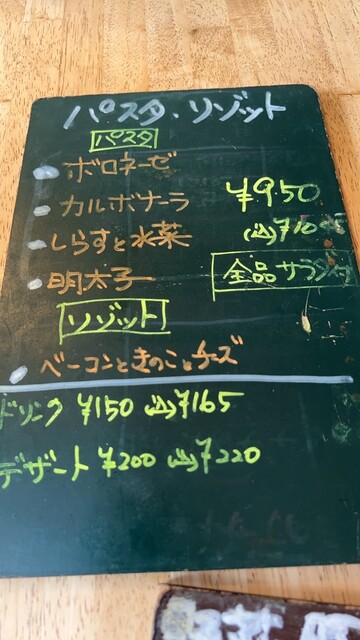 パスタ・リゾット
パスタ
ボロネーゼ
カルボナーラ
¥950
しらすと水菜
明太子
全品サラダ付
リゾット
ベーコンときのことチーズ
ドリンク ¥150 込¥165
デザート ¥200 込¥220